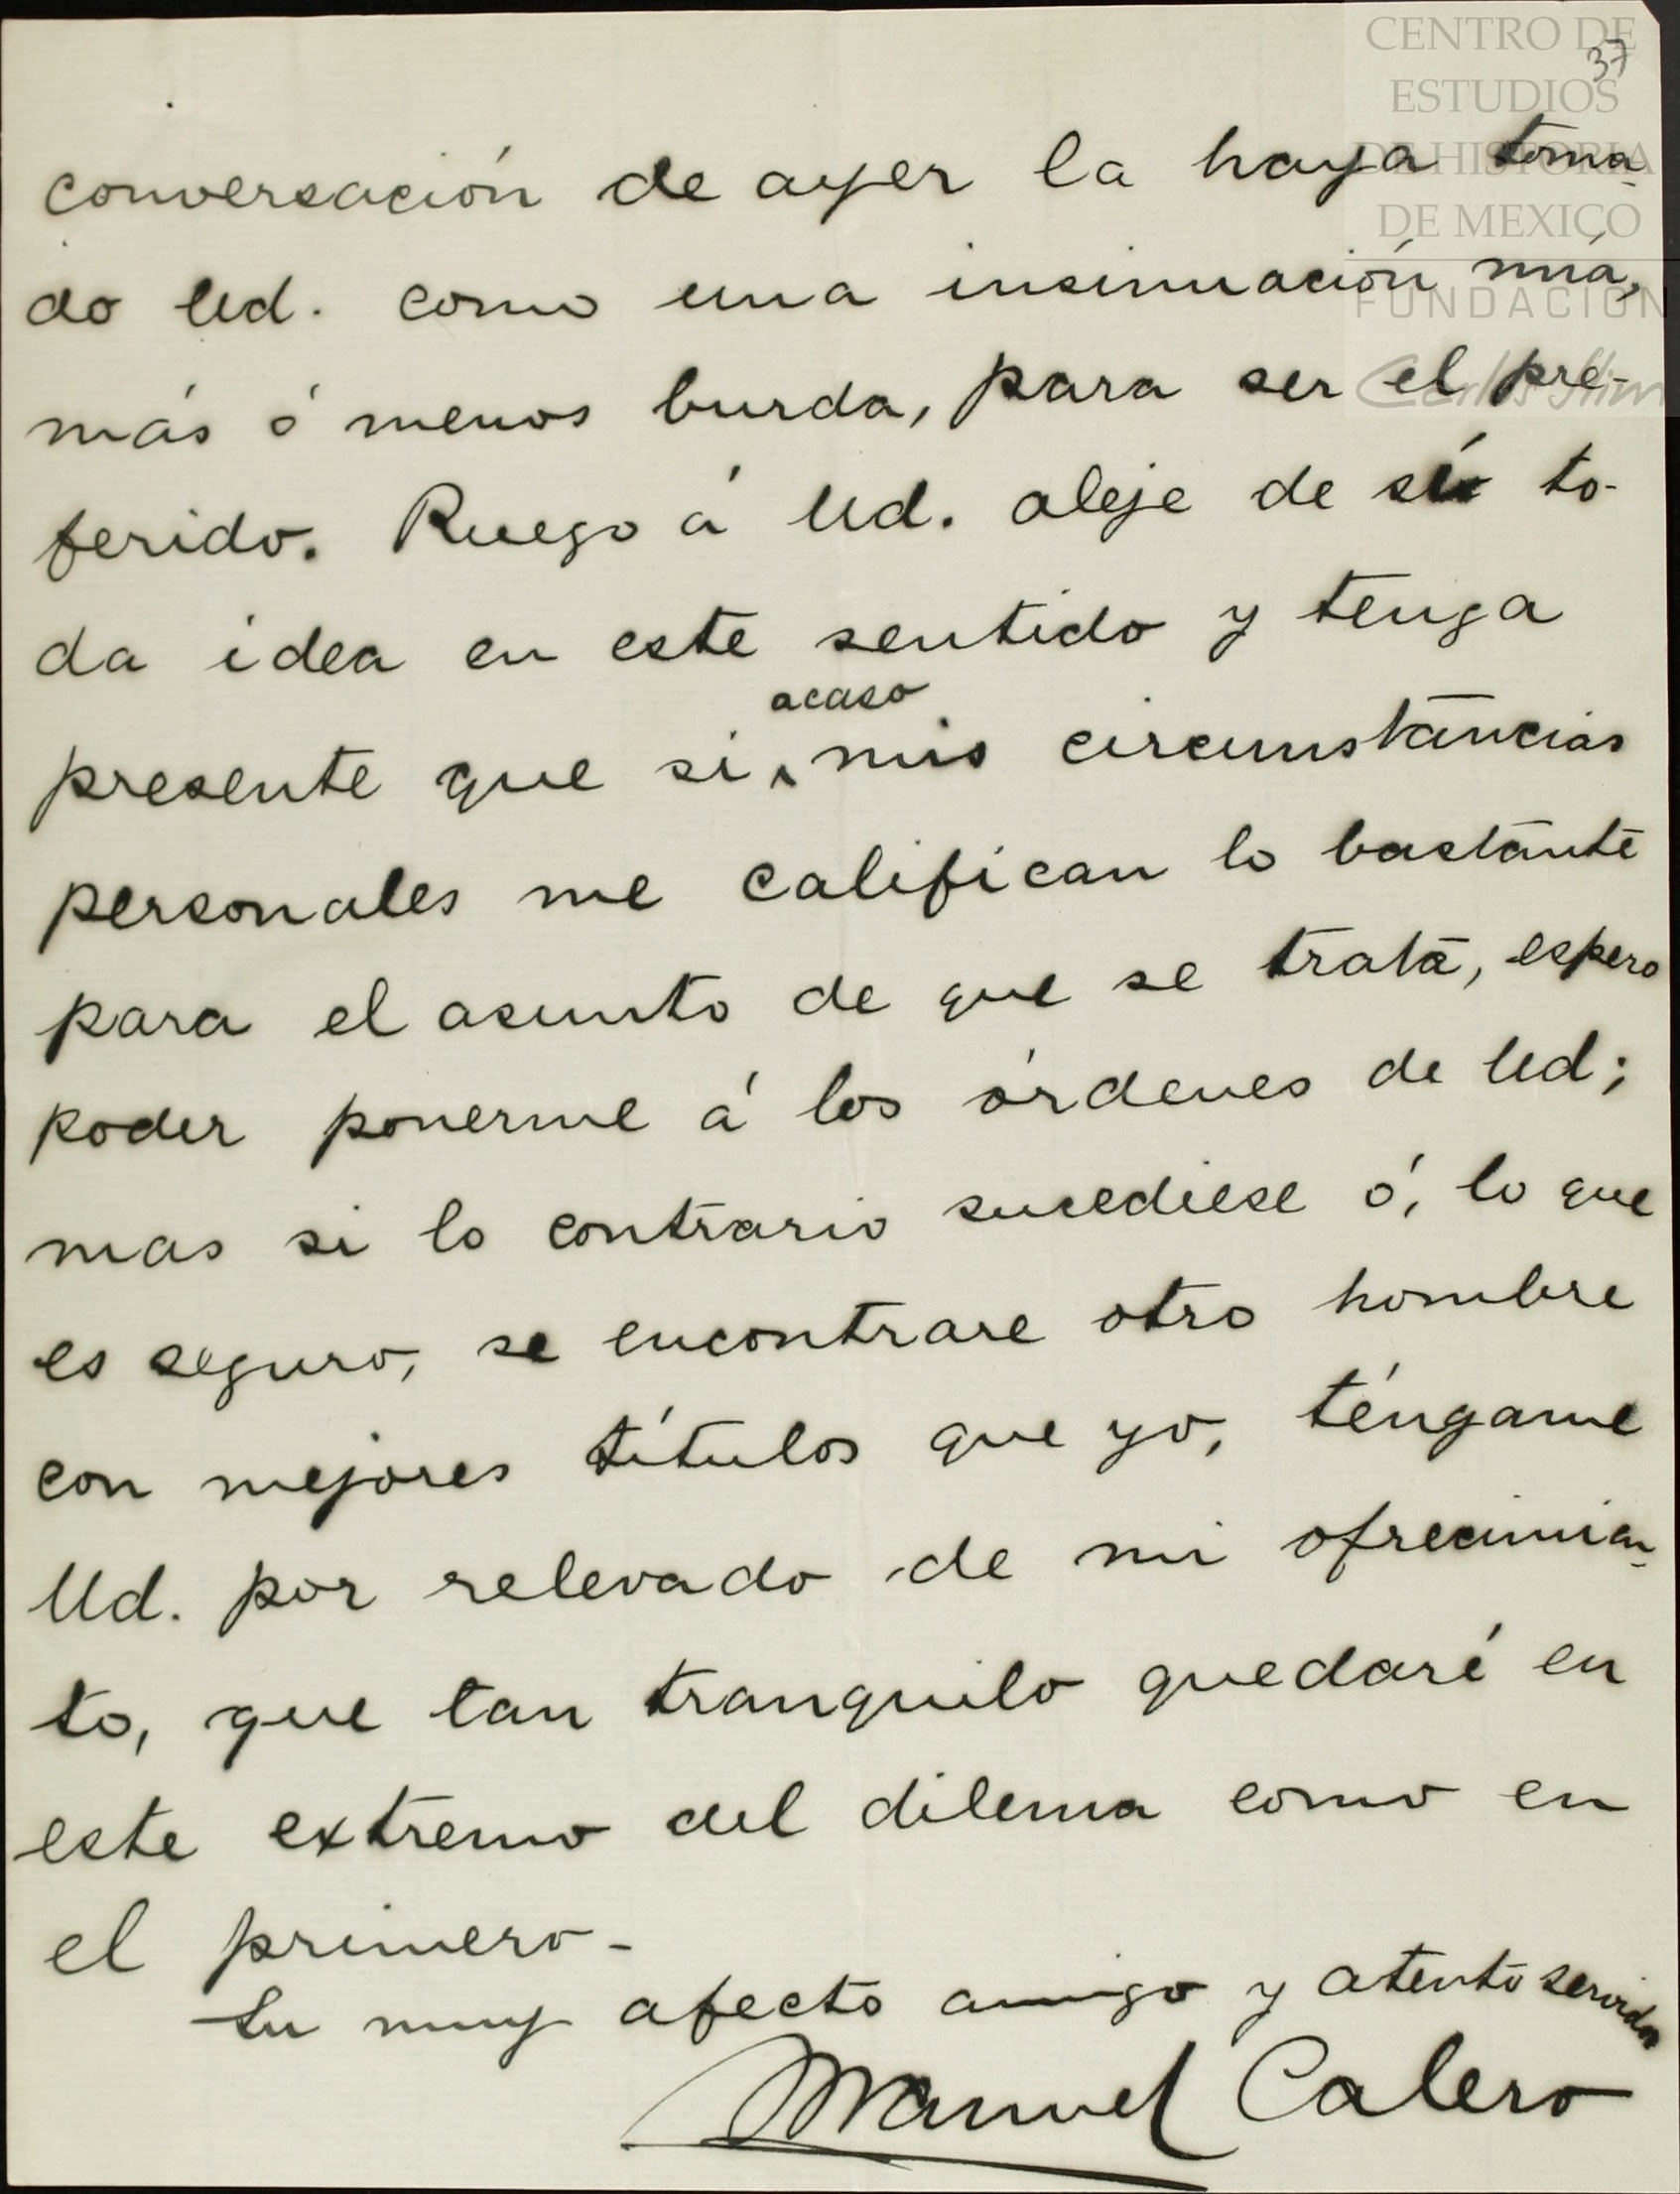 CENTRO DE
ESTUDIOS
DE HISTORIA
DE MEXICO
FUNDACIÓN
Carlos Slim
37
conversación de ayer la haya toma-
do Ud. como una insinuación mía,
más ó menos burda, para ser el pre-
ferido. Ruego á Ud. aleje de sí to-
da idea en este sentido y tenga
acaso
presente que si ^ mis circunstancias
personales me califican lo bastante
para el asunto de que se trata, espero
poder ponerme á los órdenes de Ud;
mas si lo contrario sucediese ó, lo que
es seguro, se encontrare otro hombre
con mejores títulos que yo, téngame
Ud. por relevado de mi ofrecimien-
to, que tan tranquilo quedaré en
este extremo del dilema como en
el primero-
Su muy afecto amigo y atento servidor
Manuel Calero